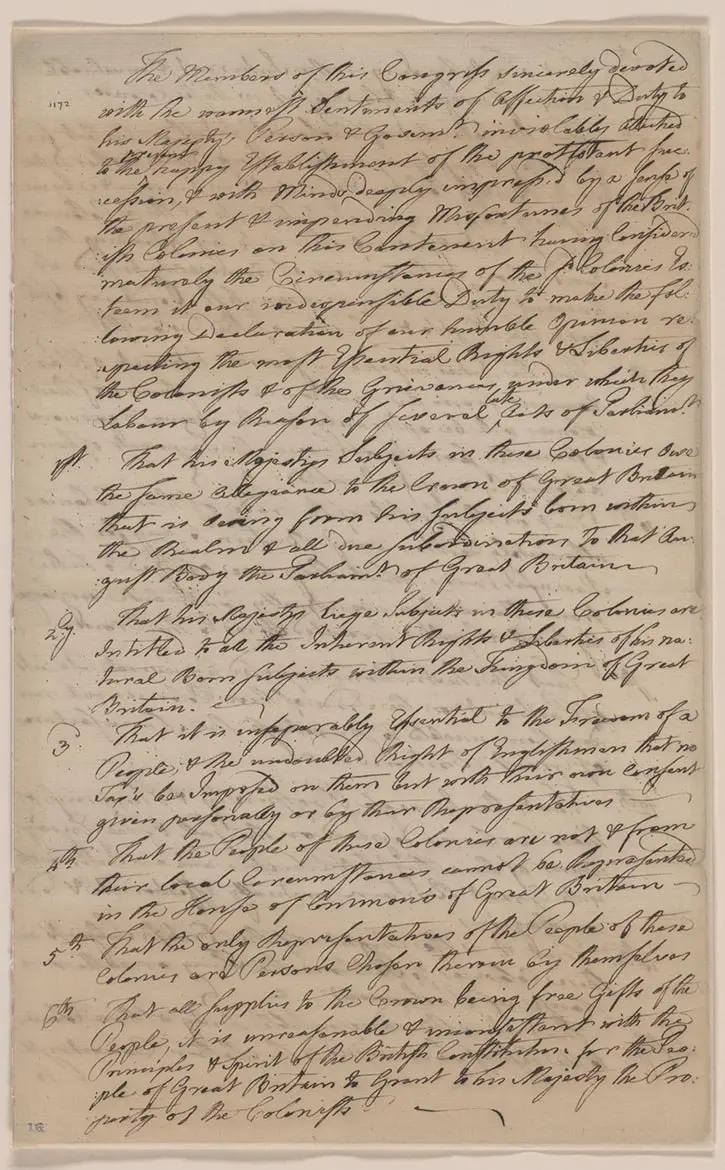 The Members of this Congress sincerely devoted
1172
with the warmest Sentiments of Affection & Duty to
his Majestys Person & Goverm.t inviolably attached
present
to the happy Establishment of the protestant suc:
:cession, & with Minds deeply impress'd by a sense of
the present & impending Misfortunes of the Brit:
:ish Colonies on this Contenent having Considerd
maturely the Circumstances of the s.d Colonies Es:
:teem it our indespensible Duty to make the fol:
:lowing Declaration of our humble Opinion re:
:specting the most Essential Rights & Liberties of
the Colonists & of the Grievances, under which they
late
Labour by Reason of several Acts of Parliam.t
1st. That his Majestys Subjects in these Colonies owe
the same Allegiance to the Crown of Great Britain
that is owing from his Subjects born within
the Realm & all due subordination to that Au:
:gust Body the Parliam.t of Great Britain
2.ly That his Majestys Liege Subjects in these Colonies are
Intitled to all the Inherent Rights & Liberties of his na:
:tural Born Subjects within the Kingdom of Great
Britain.
3 That it is inseparably Essential to the Freedom of a
People, & the undoubted Right of Englishmen that no
Tax's be Imposed on them but with their own Consent
given personally or by their Representatives
4th That the People of these Colonies are not & from
their local Circumstances cannot be Represented
in the House of Common's of Great Britain
5th That the only Representatives of the People of these
Colonies are Persons Chosen therein by themselves
6th That all supplies to the Crown being free Gifts of the
People, it is unreasonable & inconsistant with the
Principles & Spirit of the British Constitution for the Peo:
:ple of Great Britain to Grant to his Majesty the Pro:
:perty of the Colonists